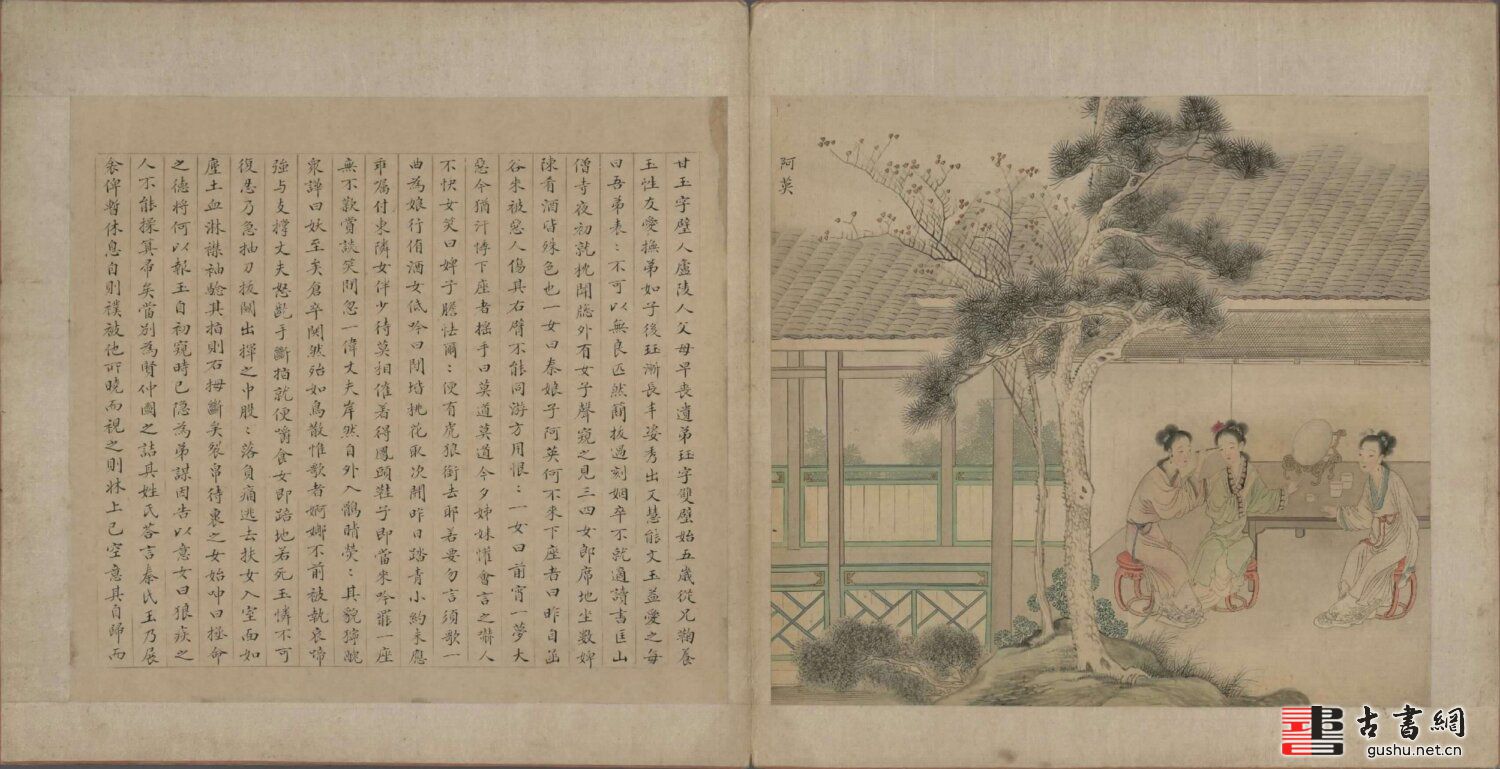 阿英
甘玉字璧人廬陵人父母早喪遺弟珏字雙璧始五歲從兄鞠養
玉性友愛撫弟如子後珏漸長丰姿秀出又慧能文玉益愛之每
曰吾弟表〻不可以無良匹然簡拔過刻姻卒不就適讀書匡山
僧寺夜初就枕聞牕外有女子聲窺之見三四女郎席地坐數婢
陳肴酒皆殊色也一女曰秦娘子阿英何不來下座者曰昨自函
谷來被惡人傷其右臂不能同游方用恨〻一女曰前宵一夢大
惡今猶汗悸下座者搖手曰莫道莫道今夕姊妹懽會言之嚇人
不快女笑曰婢子膽怯爾〻便有虎狼銜去耶若要勿言須歌一
曲為娘行侑酒女低吟曰閒堦桃花取次開昨日踏青小約未應
乖囑付東隣女伴少待莫相催着得鳳頭鞋子即當來吟罷一座
無不歎賞談笑間忽一偉丈夫岸然自外入鶻睛熒〻其貌獰醜
衆譁曰妖至矣倉卒鬨然殆如鳥散惟歌者婀娜不前被執哀啼
強与支撐丈夫怒齕手斷指就便嚼食女即踣地若死玉憐不可
復忍乃急抽刀拔關出揮之中股〻落負痛逃去扶女入室面如
塵土血淋襟袖驗其指則右拇斷矣裂帛待裹之女始呻曰拯命
之德將何以報玉自初窺時已隱為弟謀因告以意女曰狼疾之
人不能操箕帚矣當別為賢仲圖之詰其姓氏荅言秦氏玉乃展
衾俾暫休息自則襆被他所曉而視之則牀上已空意其自歸而
古書網
gushu.net.cn